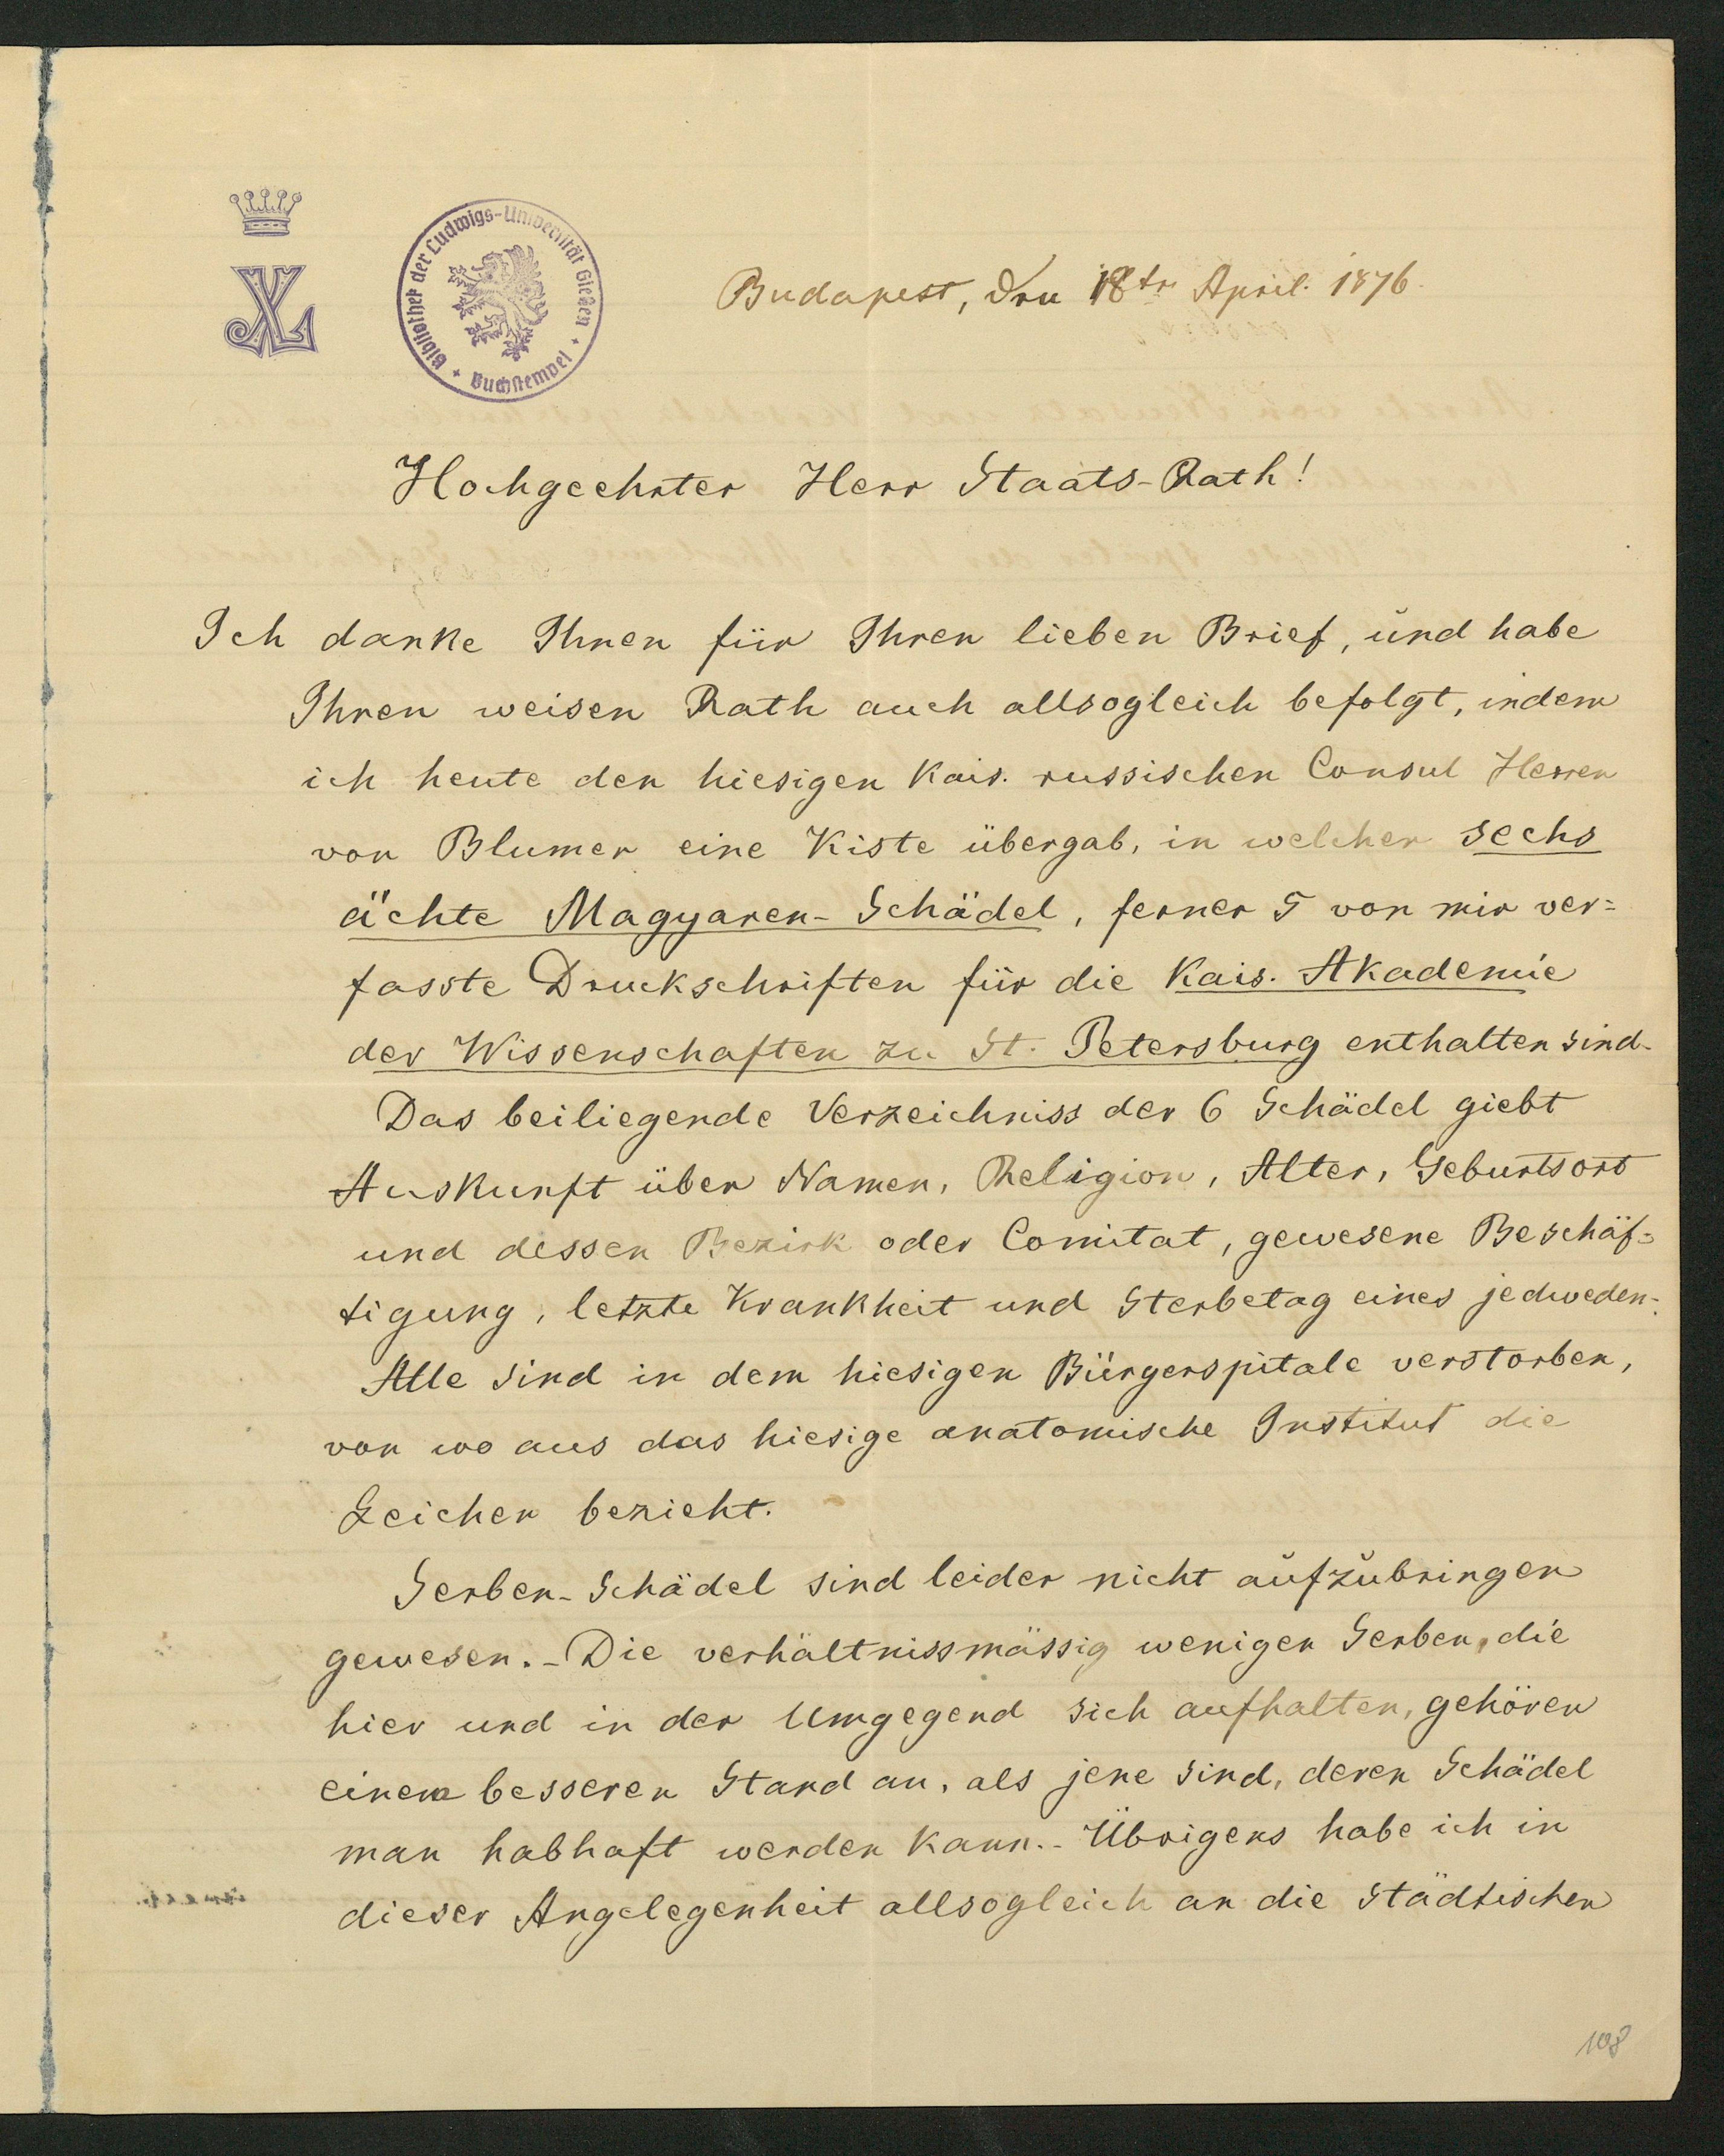 LX
Bibliothek der Ludwigs-Universität Gießen
+ Buchstempel +
Budapest, den 18ten April. 1876.
Hochgeehrter Herr Staats-Rath!
Ich danke Ihnen für Ihren lieben Brief, und habe
Ihren weisen Rath auch allsogleich befolgt, indem
ich heute den hiesigen Kais. russischen Consul Herren
von Blumer eine Kiste übergab, in welcher sechs
ächte Magyaren-Schädel, ferner 5 von mir ver=
fasste Druckschriften für die Kais. Akademie
der Wissenschaften zu St. Petersburg enthalten sind.
Das beiliegende Verzeichniss der 6 Schädel giebt
Auskunft über Namen, Religion, Alter, Geburtsort
und dessen Bezirk oder Comitat, gewesene Beschäf=
tigung, letzte Krankheit und Sterbetag eines jedweden.
Alle sind in dem hiesigen Bürgerspitale verstorben,
von wo aus das hiesige anatomische Institut die
Leichen bezieht.
Serben-Schädel sind leider nicht aufzubringen
gewesen. - Die verhältnissmässig wenigen Serben, die
hier und in der Umgegend sich aufhalten, gehören
einem besseren Stand an, als jene sind, deren Schädel
man habhaft werden kann. - Übrigens habe ich in
dieser Angelegenheit allsogleich an die Städtischen
108